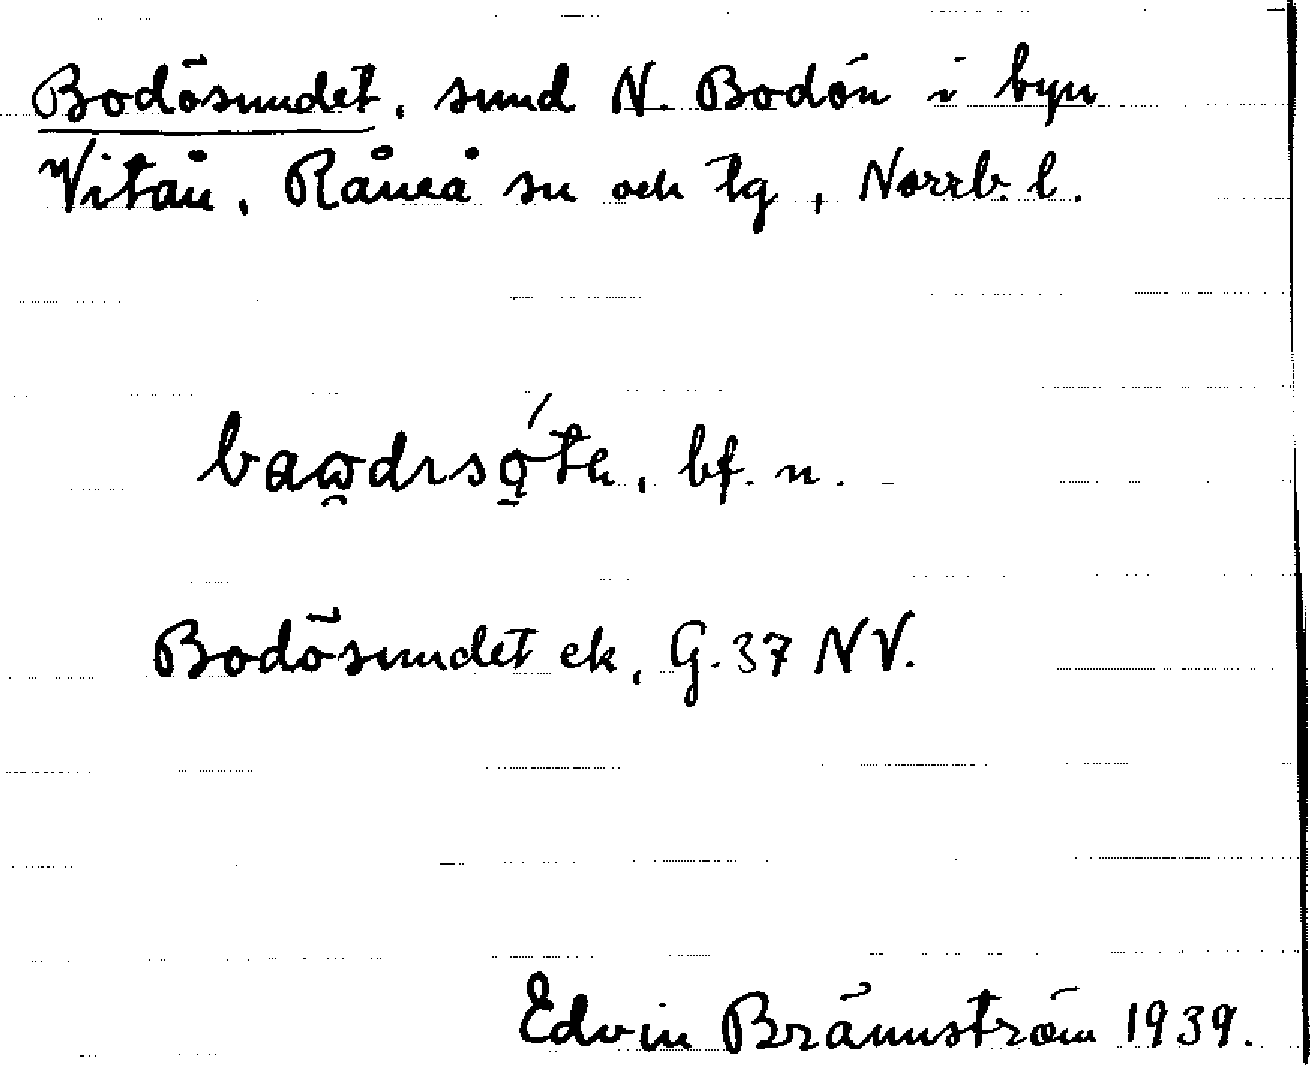 Bodösundet, sund N. Bodön i byn
Vitån, Råneå sn och tg, Norrb. l.
bf. n.
Bodösundet ek, G. 37 NV.
Edvin Brännström 1939.